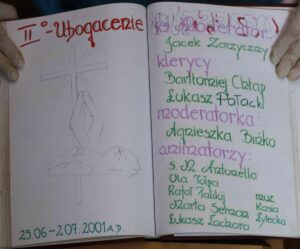 II° - Ubogacenie
25.06 - 2.07.2001 A.D.
ks. moderator:
Jacek Zarzyczny
klerycy:
Bartłomiej Chłap
Łukasz Potacki
moderatorka:
Agnieszka Bińko
animatorzy:
s. M. Antonella
Ola Tołpa
Rafał Palikij muz.
Marta Kasia
Łukasz